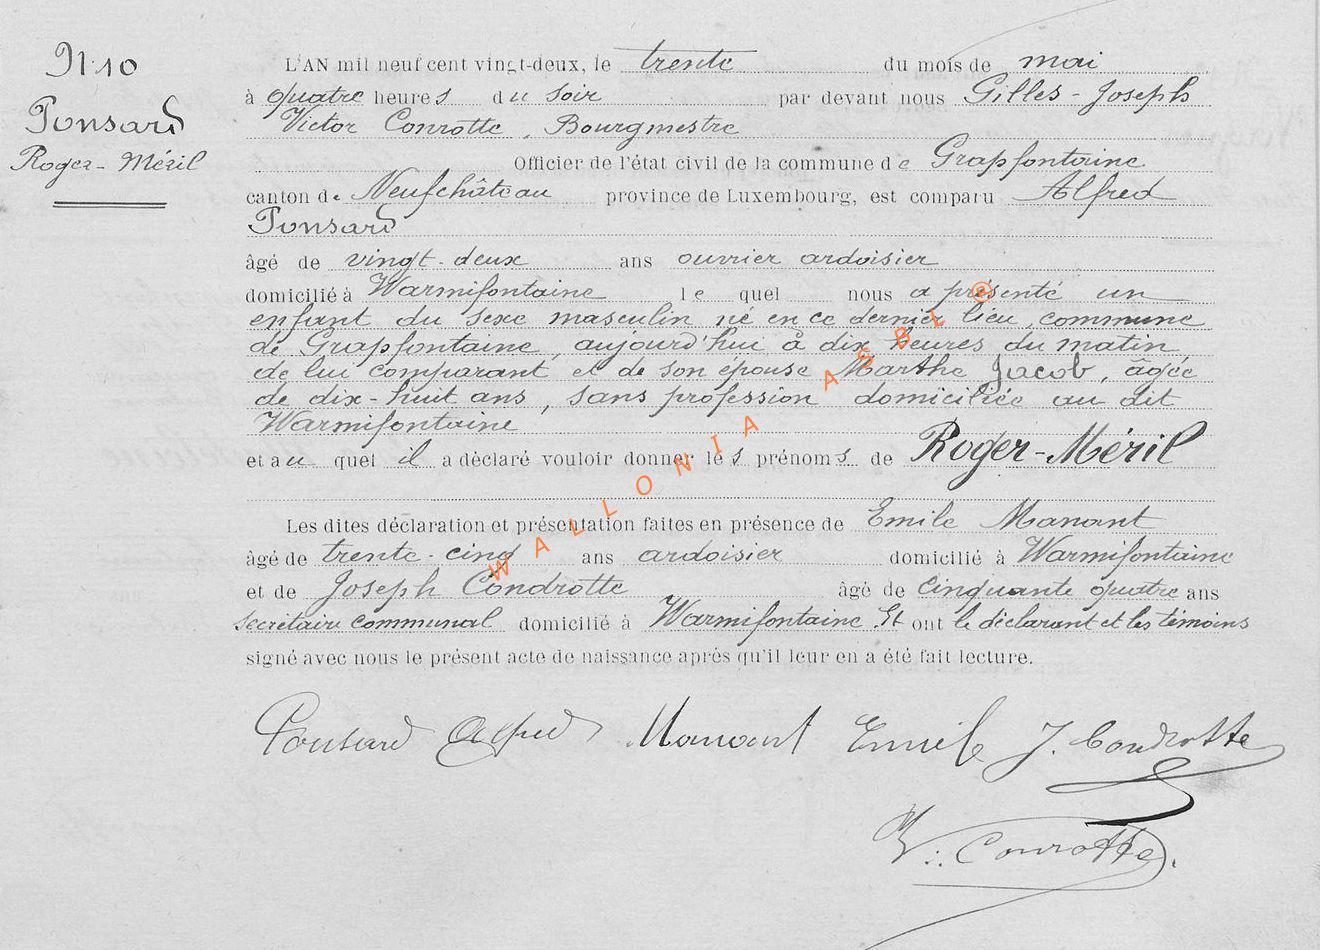 N° 10
Ponsard
Roger-Méril
L'AN mil neuf cent vingt-deux, le trente du mois de mai
à quatre heures du soir par devant nous Gilles-Joseph
Victor Conrotte, Bourgmestre
Officier de l'état civil de la commune de Grapfontaine
canton de Neufchâteau province de Luxembourg, est comparu Alfred
Ponsard
âgé de vingt-deux ans ouvrier ardoisier
domicilié à Warmifontaine le quel nous a présenté un
enfant du sexe masculin né en ce dernier lieu, commune
de Grapfontaine, aujourd'hui à dix heures du matin
de lui comparant et de son épouse Marthe Jacob, âgée
de dix-huit ans, sans profession domiciliée au dit
Warmifontaine
et au quel il a déclaré vouloir donner les prénoms de Roger-Méril
Les dites déclaration et présentation faites en présence de Emile Manant
âgé de trente-cinq ans ardoisier domicilié à Warmifontaine
et de Joseph Condrotte âgé de cinquante quatre ans
secrétaire communal domicilié à Warmifontaine. Et ont le déclarant et les témoins
signé avec nous le présent acte de naissance après qu'il leur en a été fait lecture.
Ponsard Alfred Manant Emile J. Condrotte
V. Conrotte.
WALLONIA ASBL ®